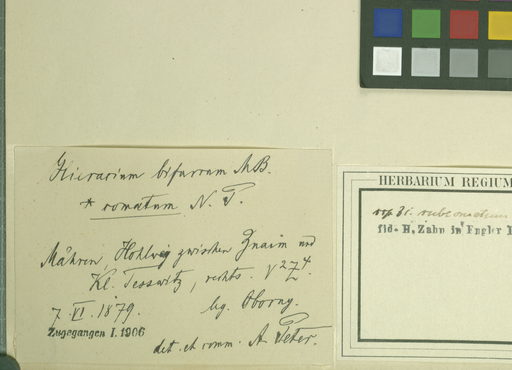 Hieracium bifurcum MB.
* comatum N. P.
Mähren, Hohlweg zwischen Znaim und
Kl. Tesswitz, rechts.
7. VI. 1879. lg. Oborny.
Zugegangen I. 1906
det. et comm. A. Peter.
HERBARIUM REGIUM
fid. H. Zahn in Engler